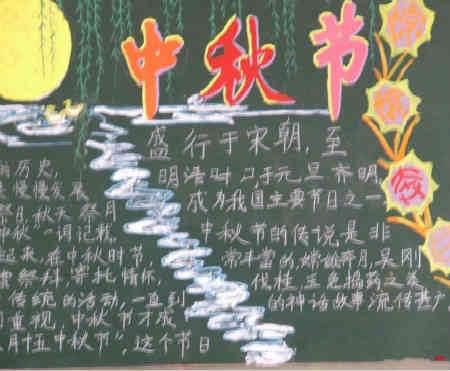 中秋节
的历史,
慢慢发展
祭日,秋天祭月
中秋"一词记载。
起来,在中秋时节,
祭拜,寄托情怀,
传统的活动,一直到
重视,中秋节才成
月十五中秋节",这个节日
盛行于宋朝,至
明清时,与元旦齐明,
成为我国主要节日之一
中秋节的传说是非
常丰富的,嫦娥奔月,吴刚
伐桂,玉兔捣药之类
的神话故事流传甚广